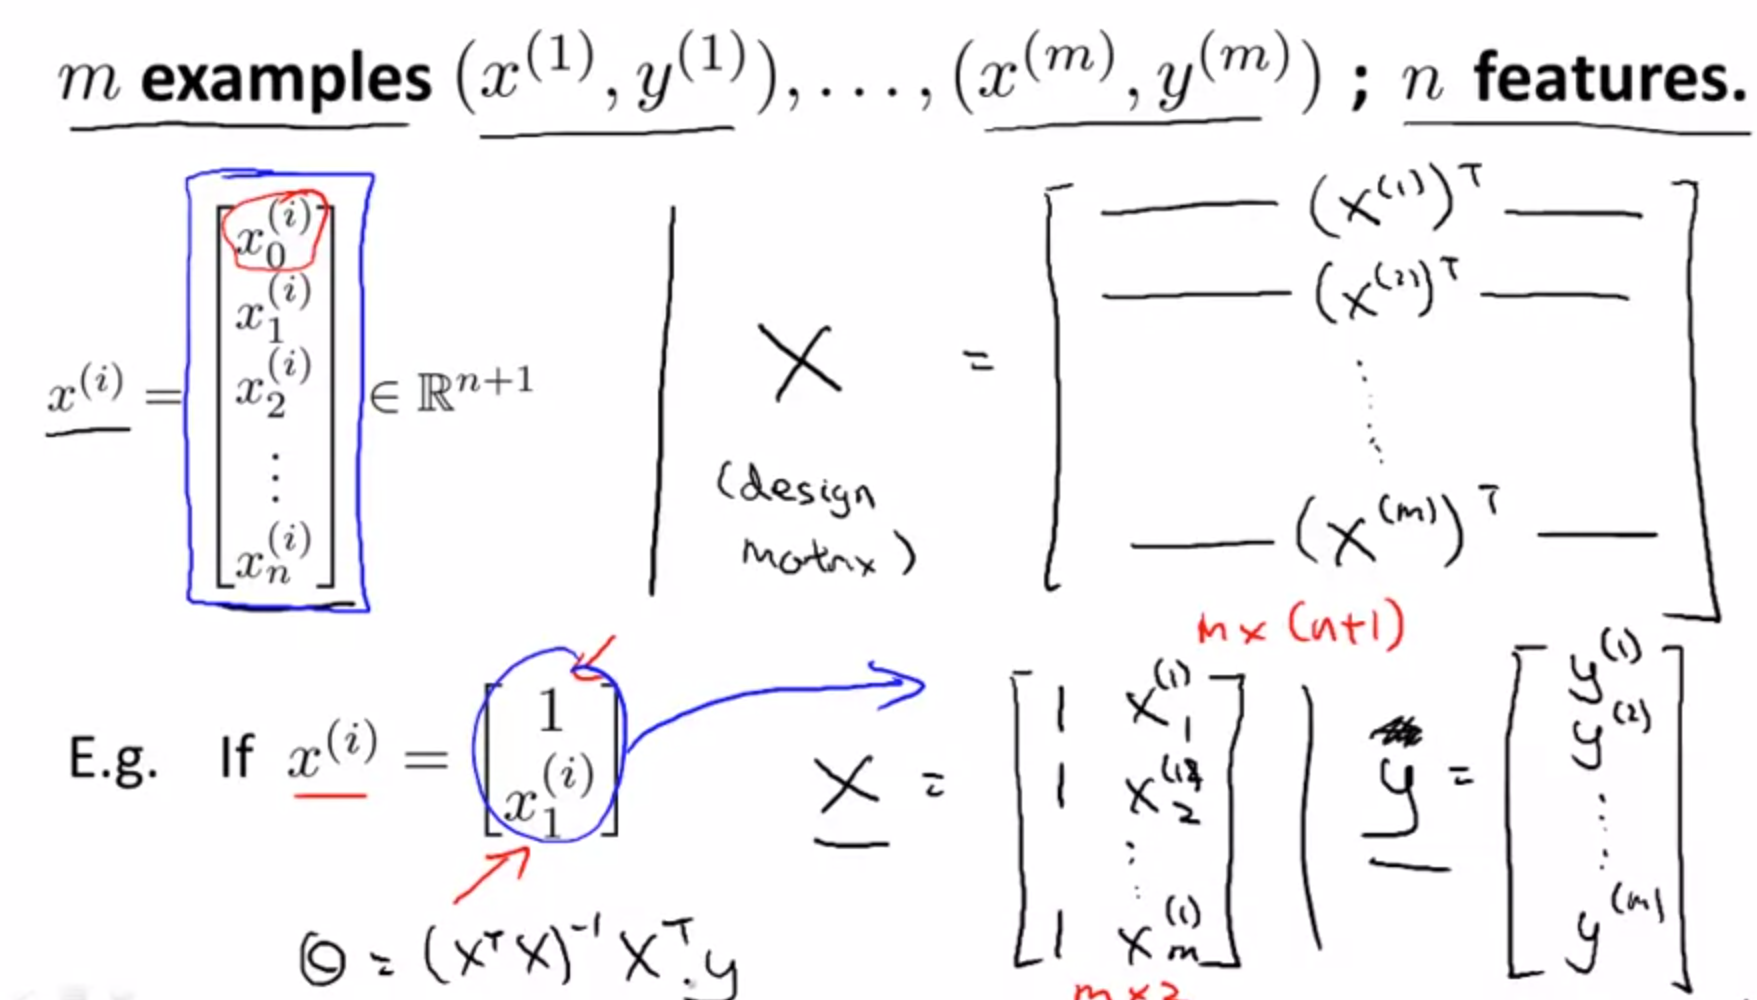 m examples (x^(1), y^(1)), . . . , (x^(m), y^(m)) ; n features.
x^(i) = [x_0^(i) x_1^(i) x_2^(i) ⋮ x_n^(i)] ∈ ℝ^(n+1)
X = [— (x^(1))^T — — (x^(2))^T — ⋮ — (x^(m))^T —]
(design
matrix)
m x (n+1)
E.g. If x^(i) = [1 x_1^(i)]
X = [1 x_1^(1) 1 x_2^(1) ⋮ 1 x_m^(1)]
y = [y^(1) y^(2) ⋮ y^(m)]
m x 2
Θ = (X^T X)^-1 X^T y